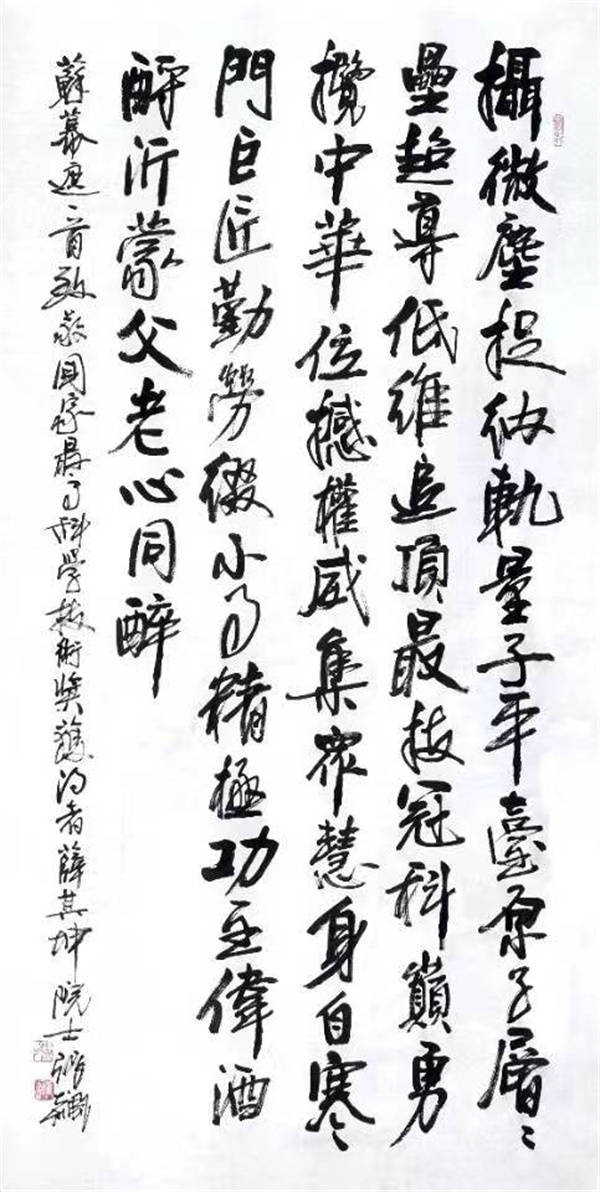 攝微塵捉納軌量子平臺原子層〻
壘超導低維追頂最技冠科巔勇
攬中華位撼權威集眾慧身自寒
門巨匠勤勞綴小高精極功至偉酒
酹沂蒙父老心同醉
蘇幕遮一首致敬國家最高科學技術獎獲得者薛其坤院士